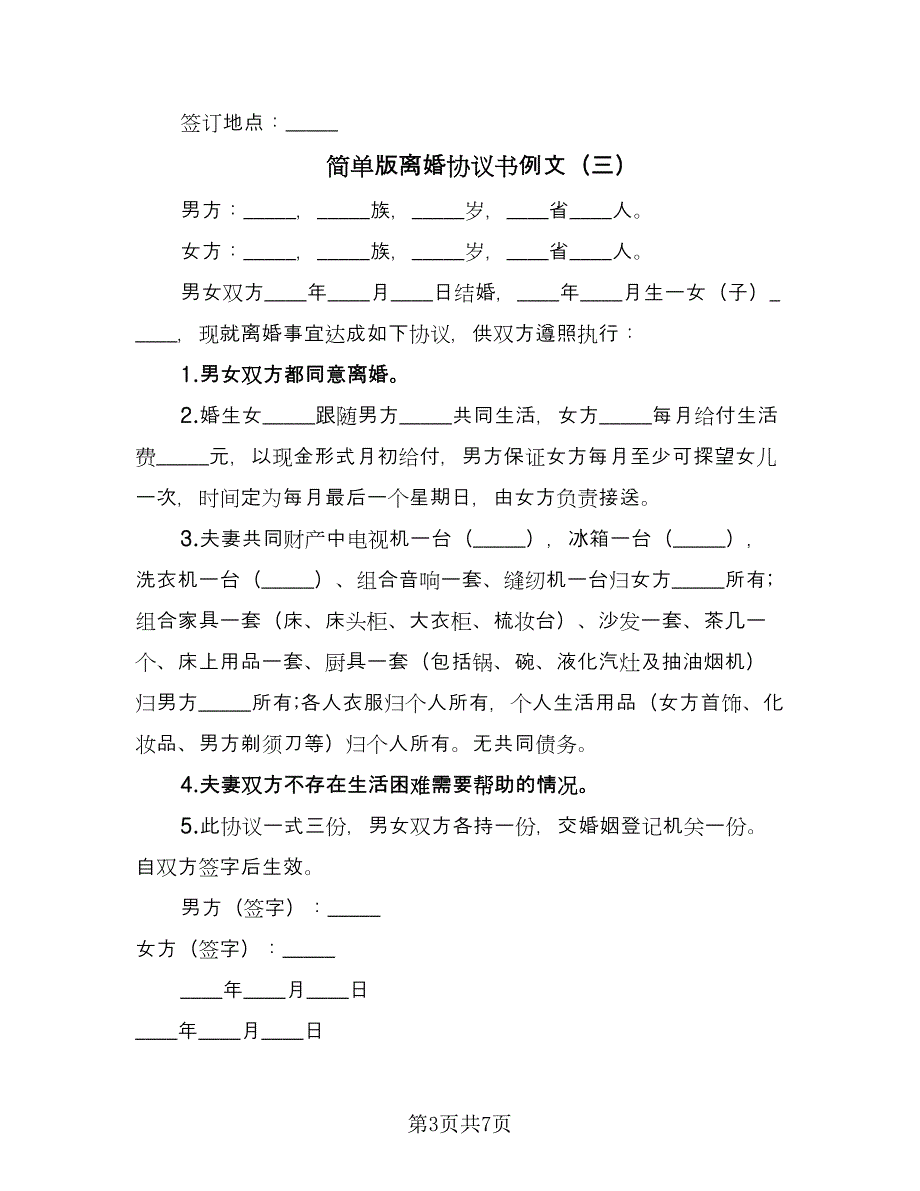 签订地点：_____
简单版离婚协议书例文（三）
男方：_____，_____族，_____岁，____省____人。
女方：_____，_____族，_____岁，____省____人。
男女双方____年____月____日结婚，____年____月生一女（子）_
____，现就离婚事宜达成如下协议，供双方遵照执行：
1.男女双方都同意离婚。
2.婚生女_____跟随男方_____共同生活，女方_____每月给付生活
费_____元，以现金形式月初给付，男方保证女方每月至少可探望女儿
一次，时间定为每月最后一个星期日，由女方负责接送。
3.夫妻共同财产中电视机一台（_____），冰箱一台（_____），
洗衣机一台（_____）、组合音响一套、缝纫机一台归女方_____所有;
组合家具一套（床、床头柜、大衣柜、梳妆台）、沙发一套、茶几一
个、床上用品一套、厨具一套（包括锅、碗、液化汽灶及抽油烟机）
归男方_____所有;各人衣服归个人所有，个人生活用品（女方首饰、化
妆品、男方剃须刀等）归个人所有。无共同债务。
4.夫妻双方不存在生活困难需要帮助的情况。
5.此协议一式三份，男女双方各持一份，交婚姻登记机关一份。
自双方签字后生效。
男方（签字）：_____
女方（签字）：_____
____年____月____日
____年____月____日
第3页共7页